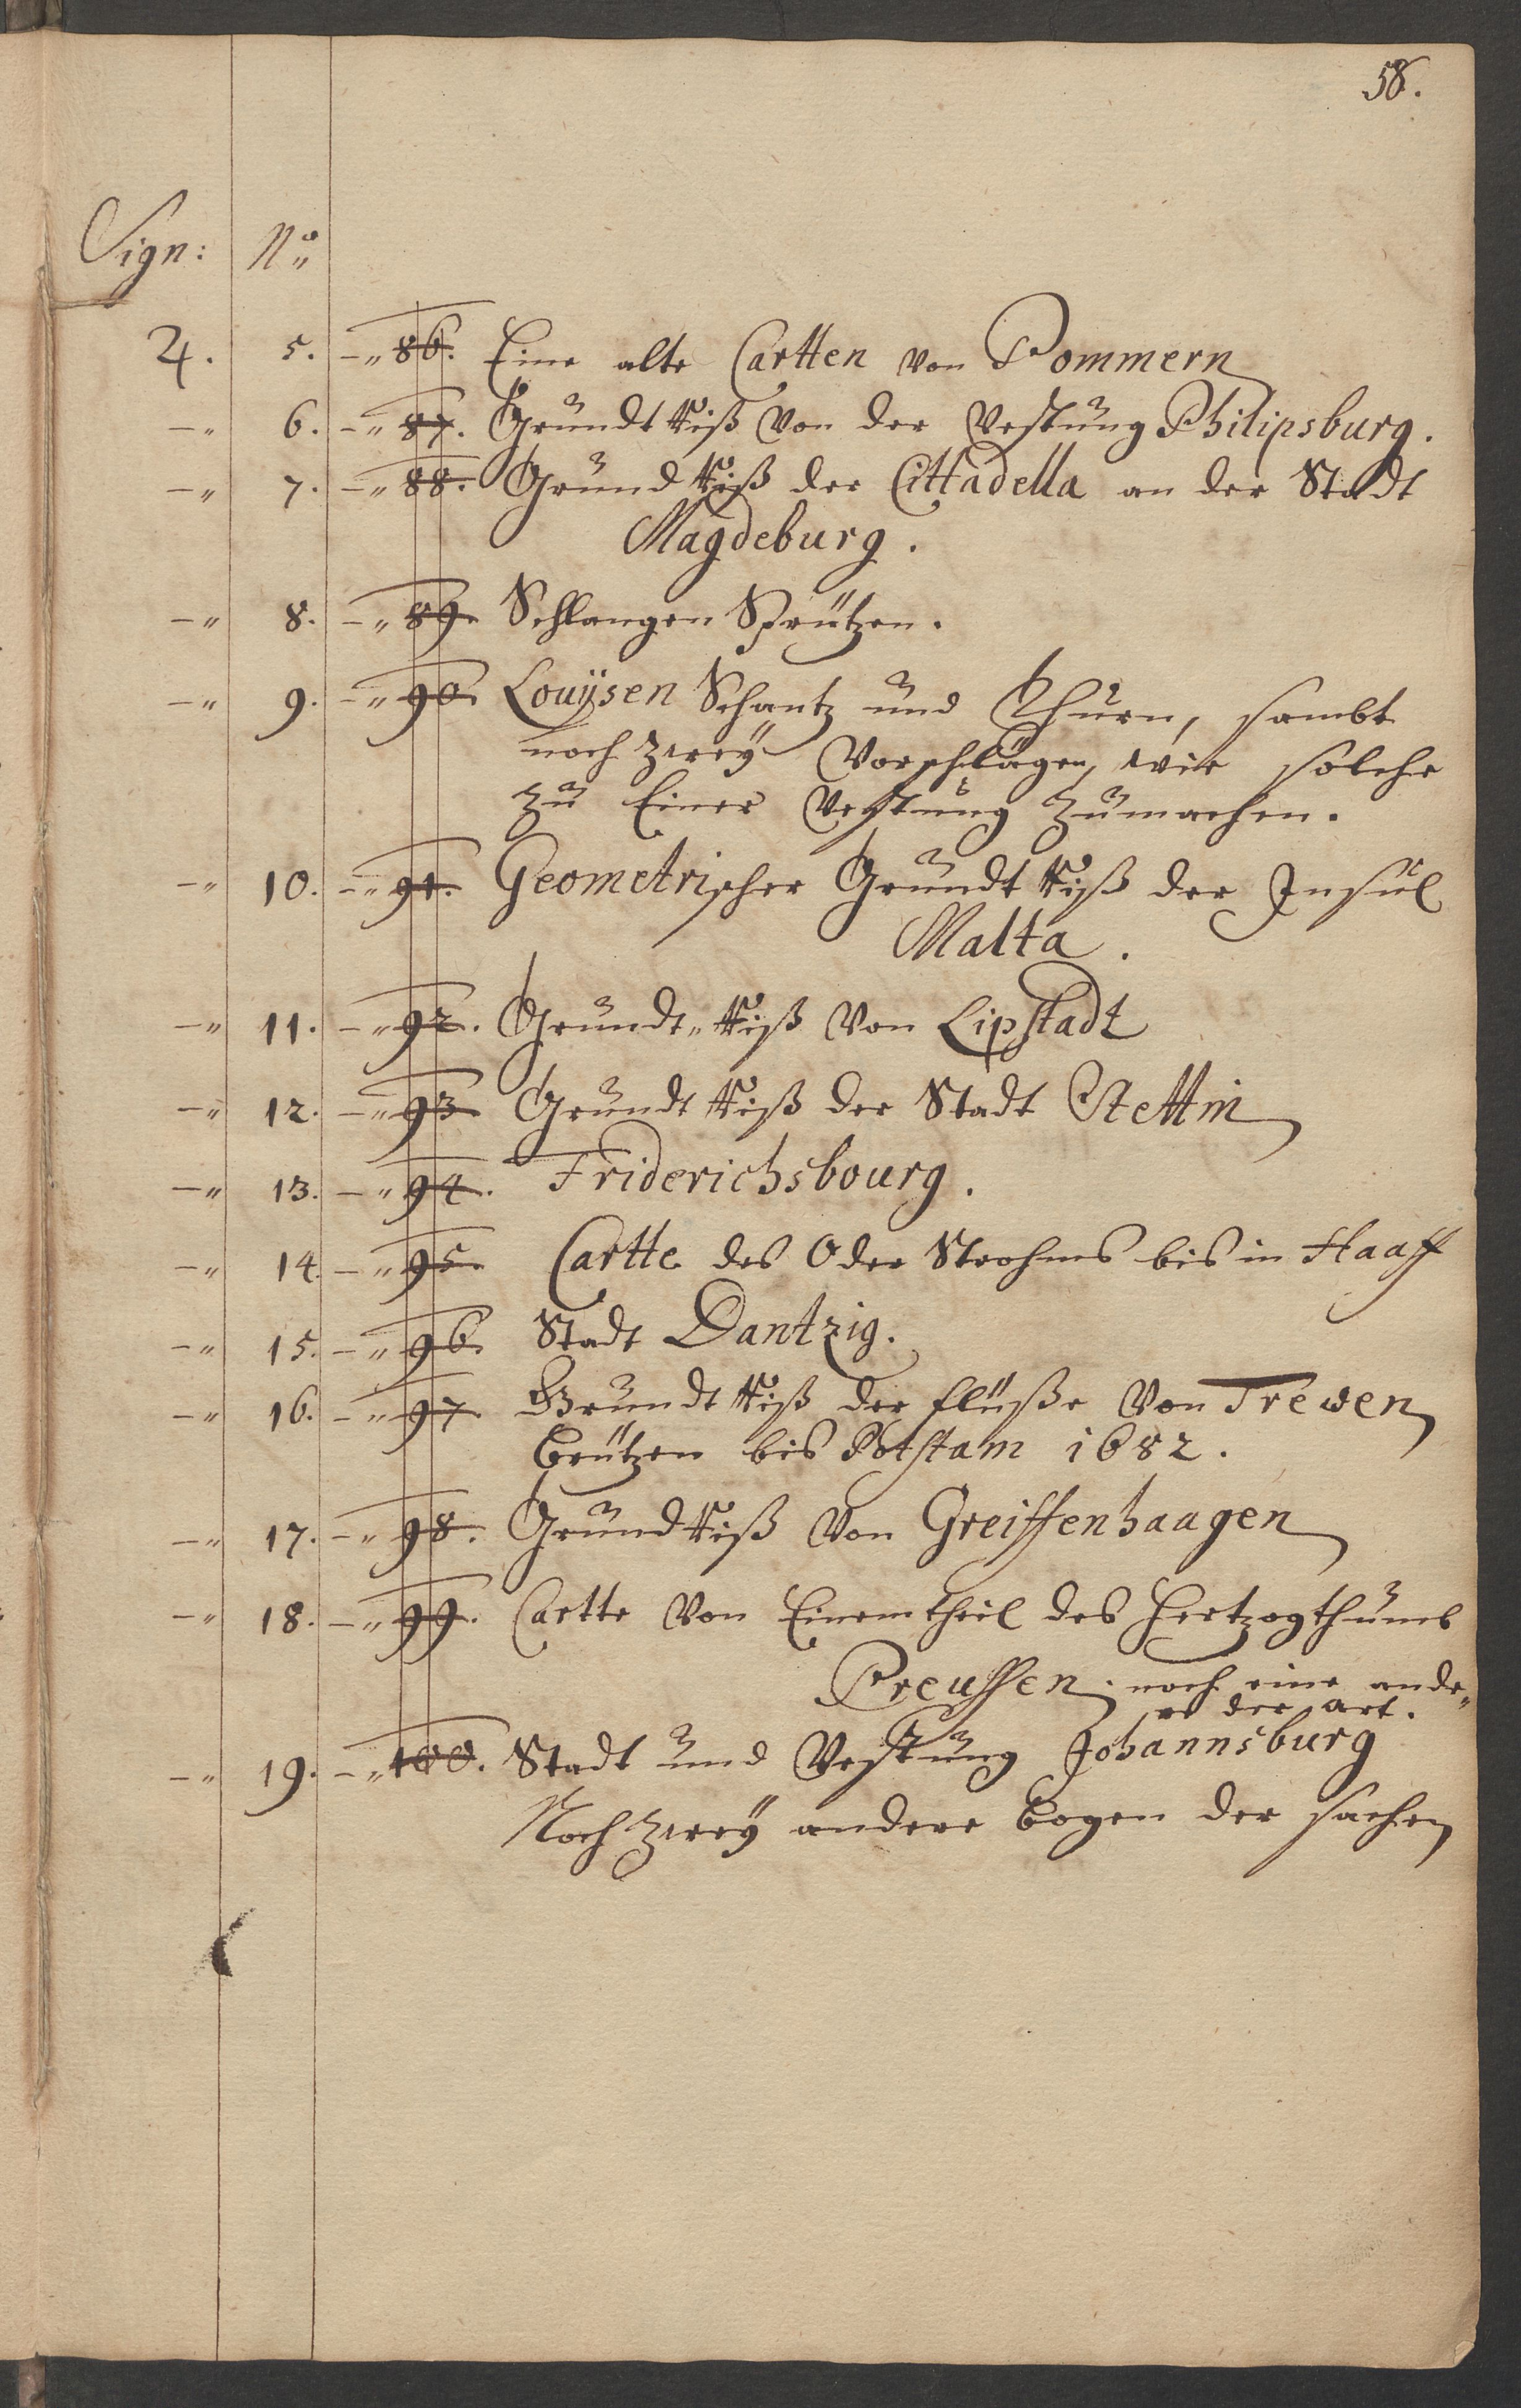 58.
Sign: No
4. 5. -„ 86. Eine alte Cartten von Pommern
-„ 6. -„ 87. Grundt Riß von der Vestung Philipsburg.
-„ 7. -„ 88. Grund Riß der Cittadella an der Stadt
Magdeburg.
-„ 8. -„ 89. Schlangen Sprützen.
-„ 9. -„ 90. Louÿsen Schantz und Thurn, sambt
noch zweÿ Vorschlägen, wie solche
zu Einer Vestung zumachen.
-„ 10. -„ 91. Geometrischer Grundt Riß der Insul
Malta.
-„ 11. -„ 92. Grundt„Riß von Lipstadt
-„ 12. -„ 93 Grundt Riß der Stadt Stettin
-„ 13. -„ 94. Friderichsbourg.
-„ 14. -„ 95. Cartte des Oder Strohms bis in Haaff
-„ 15. -„ 96. Stadt Dantzig.
-„ 16. -„ 97 Grundt Riß der Flüße von Trewen
Brützen bis Potstam 1682.
-„ 17. -„ 98. Grundt Riß von Greiffenhaagen
-„ 18. -„ 99. Cartte von Einem theil des Hertzogthumb
Preussen. noch eine ande„
re der art.
-„ 19. -„ 100. Stadt und Vestung Johannsburg
Noch zweÿ andere bogen der sachen